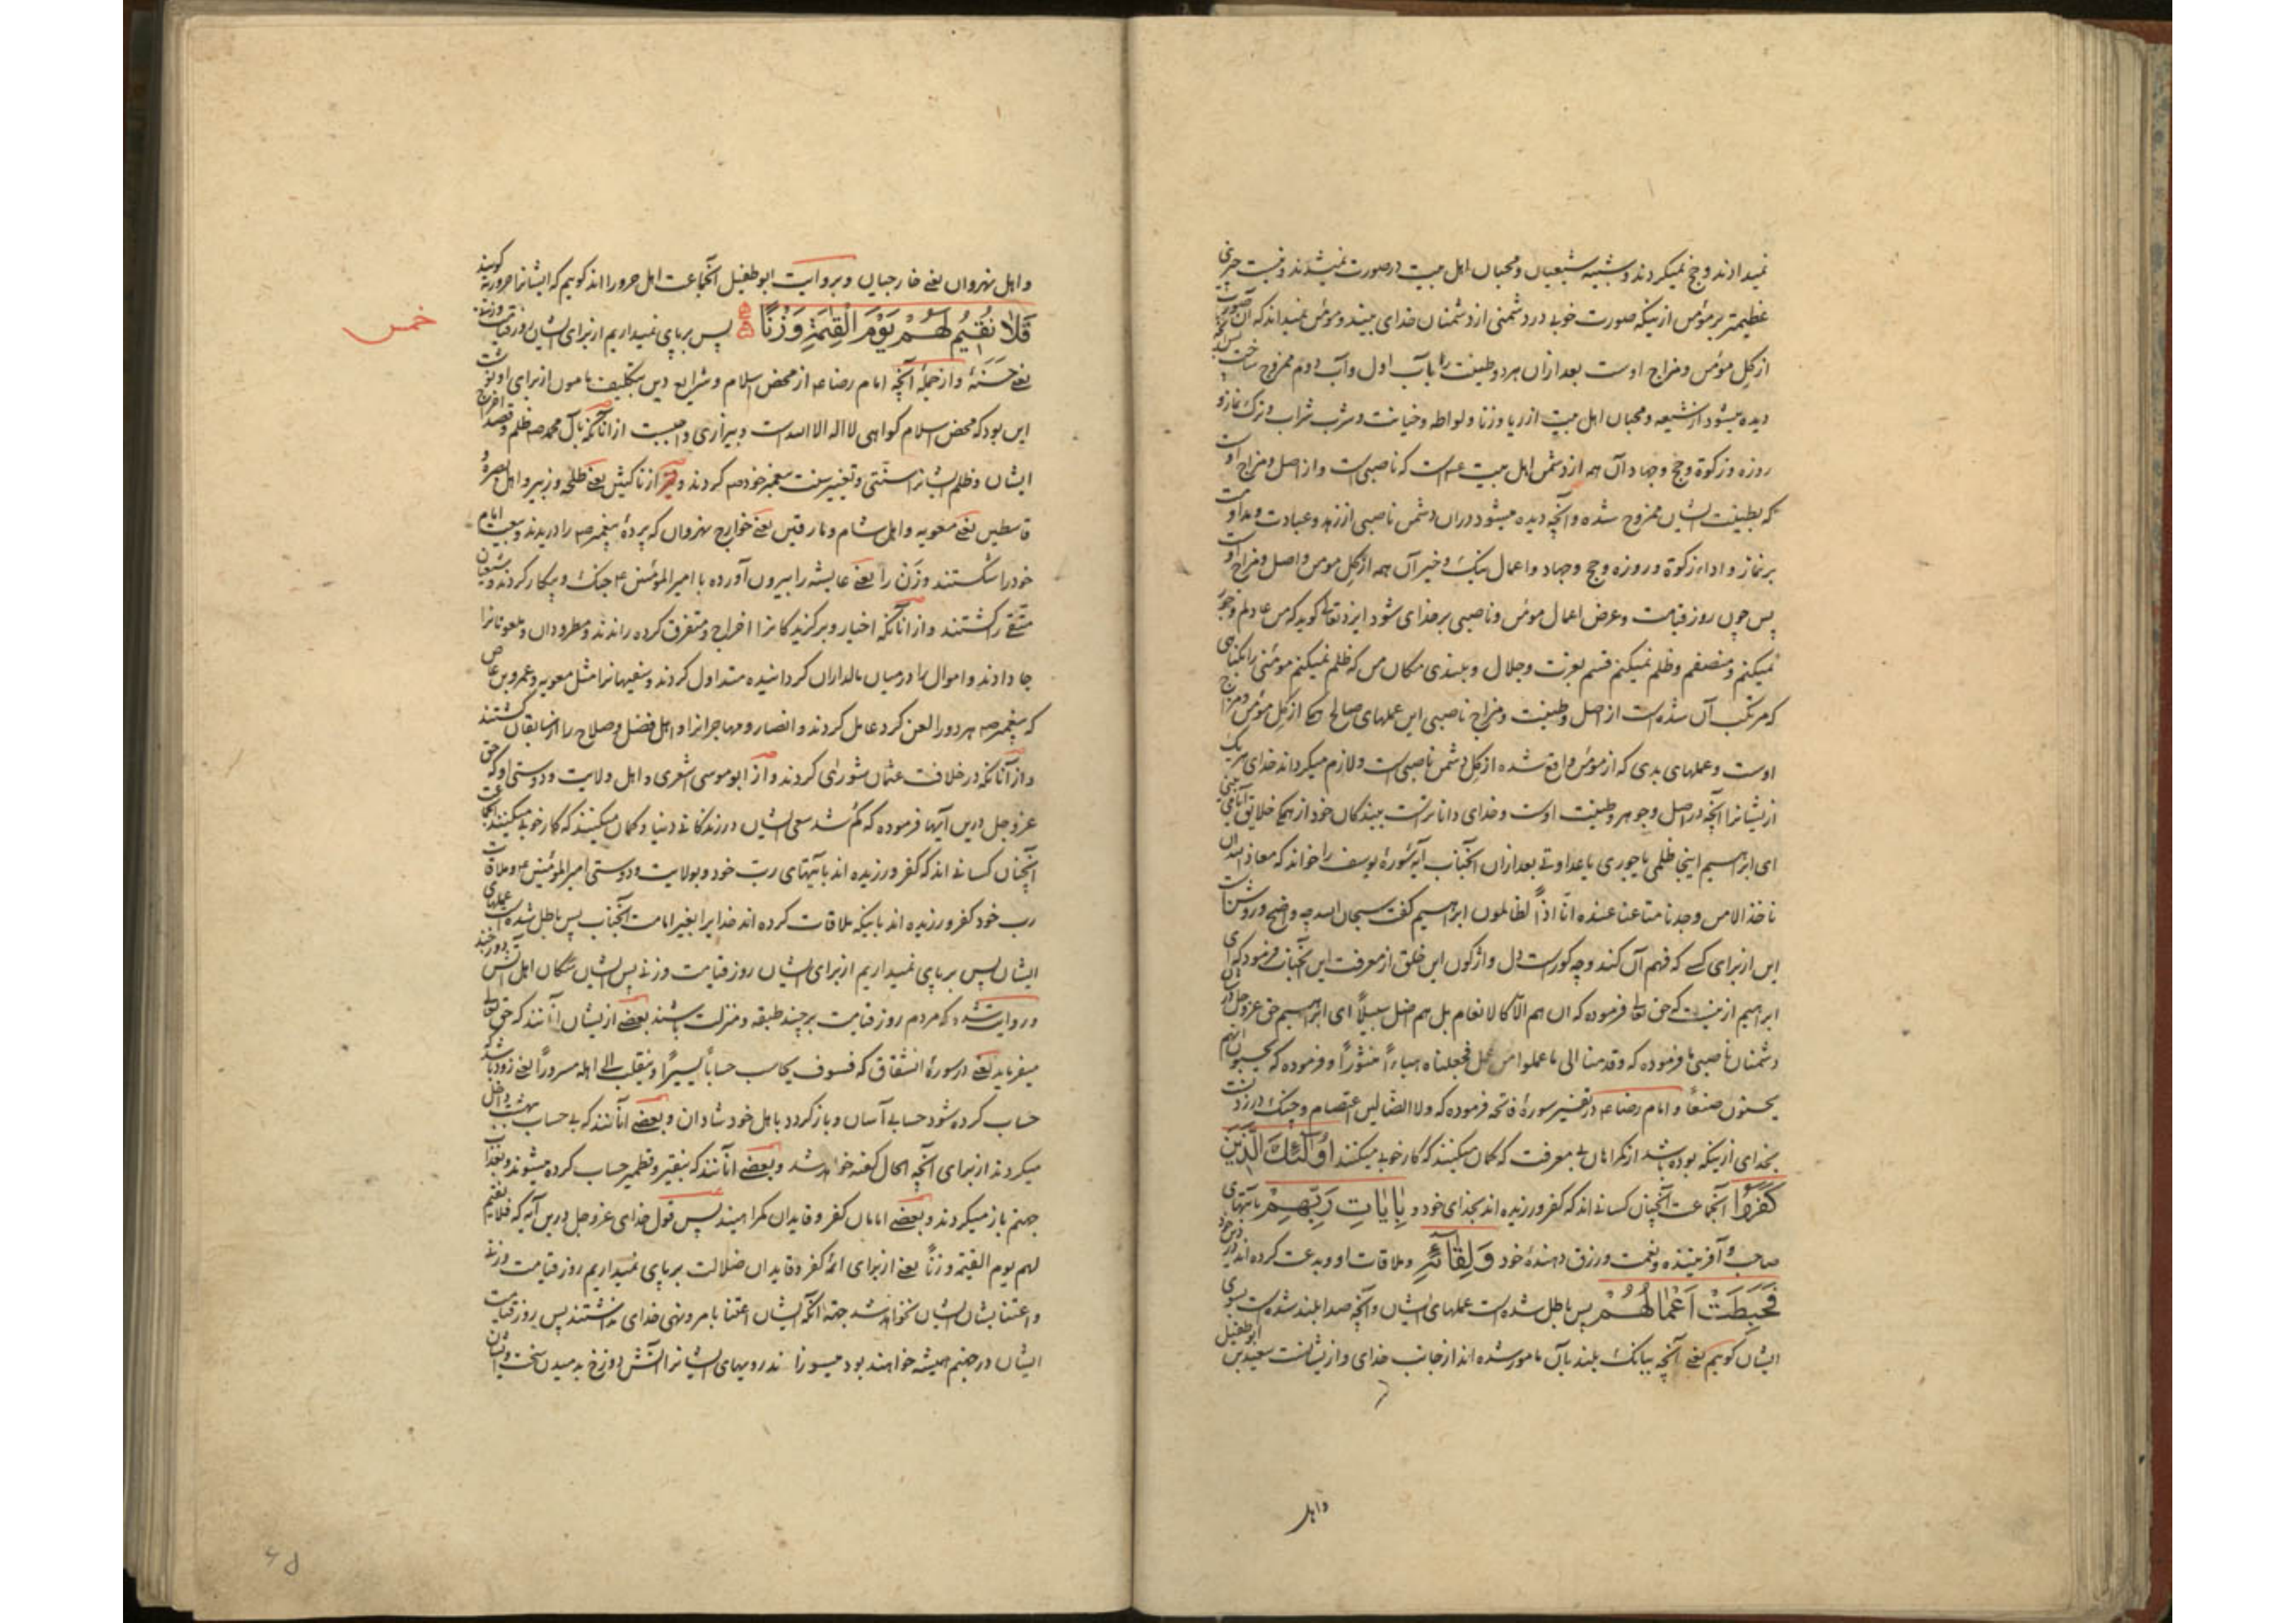 نمیدادند و حج نمیکردند و شبیه شیعیان و محبان اهل بیت در صورت نمیشدند و نیست چیزی
عظیمتر بر مؤمن ازینکه صورت خوبی در دشمنی از دشمنان خدای بیند و مؤمن نمیداند که آن صورت
از کل مؤمن و مزاج اوست بعد ازان هر دو طینت را بآب اول و آب دوم ممزوج ساخت
دیده میشود از شیعه و محبان اهل بیت از ربا و زنا و لواطه و خیانت و شرب شراب و ترک نماز و
روزه و زکوة و حج و جهاد آن همه از دشمن اهل بیت عم است که ناصبی است و از اصل و مزاج اوست
که بطینت ایشان ممزوج شده و آنچه دیده میشود دران دشمن ناصبی از زهد و عبادت و مداومت
بر نماز و اداء زکوة و روزه و حج و جهاد و اعمال نیک و خیر آن همه از کل مومن و اصل و مزاج اوست
پس چون روز قیامت و عرض اعمال مؤمن و ناصبی بر خدای شود ایزد تعالی گوید که من عادلم و جور
نمیکنم و منصفم و ظلم نمیکنم قسم بعزت و جلال و بلندی مکان من که ظلم نمیکنم مؤمنی را بگناهی
که مرتکب آن شده است از اصل و طینت و مزاج ناصبی این عملهای صالح همه از کل مؤمن و مزاج
اوست و عملهای بدی که از مؤمن واقع شده از کل دشمن ناصبی است و لازم میگرداند خدای هر یک
ازیشانرا آنچه در اصل و جوهر و طینت اوست و خدای داناتر است ببندگان خود از همه خلایق
ای ابراهیم اینجا ظلمی یا جوری یا عداوتی بعد ازان آنجناب آیه سورهٔ یوسف را خواند که معاذ الله ان
ناخذ الا من وجدنا متاعنا عنده انا اذاً لظالمون ابراهیم گفت سبحان الله چه واضح و روشنست
این از برای کسی که فهم آن کند و چه کورست دل واژگون این خلق از معرفت این آنجناب فرمود که ای
ابراهیم ازینست که حق تعالی فرموده که ان هم الا کالانعام بل هم اضل سبیلاً ای ابراهیم حق عز و جل در
دشمنان ناصبی ما فرموده که و قدمنا الی ما عملوا من عمل فجعلناه هباءً منثوراً و فرموده که یحسبون انهم
یحسنون صنعاً و امام رضا عم در تفسیر سورهٔ فاتحه فرموده که ولا الضالین اعتصام و چنگ در زدنست
بخدای ازینکه بوده باشد از گمراهان بی معرفت که گمان میکنند که کار خوب میکنند اُولٰئِكَ الَّذِينَ
كَفَرُوا آنجماعت آنچنان کسانی اند که کفر ورزیده اند بخدای خود و بِآيَاتِ رَبِّهِمْ بآیتهای
صاحب و آفریننده و نعمت و رزق دهندهٔ خود وَلِقَائِهِ و ملاقات او و بدعت کرده اند در دین خود
فَحَبِطَتْ أَعْمَالُهُمْ پس باطل شده است عملهای ایشان و آنچه صدا بلند شده است بسوی
ایشان گوییم یعنی آنچه ببانگ بلند بآن مامور شده اند از جانب خدای و ازیشانست سعید بن ابو طفیل
واهل
و اهل نهروان یعنی خارجیان و بروایت ابو طفیل آنجماعت اهل حرورا اند گوییم که ایشانرا حروریه گویند
فَلَا نُقِيمُ لَهُمْ يَوْمَ الْقِيٰمَةِ وَزْنًا پس بر پای نمیداریم از برای ایشان روز قیامت وزنی
خمس
یعنی حَسَنَهٔ و از جملهٔ آنچه امام رضا عم از محض اسلام و شرایع دین بتکلیف مامون از برای او نوشت
این بود که محض اسلام گواهی لا اله الا الله است و بیزاری واجبست از آنانکه بآل محمد صم ظلم و قصد اخراج
ایشان و ظلم ایشانرا سنتی و تغییر سنت پیغمبر خود صم کردند و تبرّا از ناکثین یعنی طلحه و زبیر و اهل بصره و
قاسطین یعنی معویه و اهل شام و مارقین یعنی خوارج نهروان که پردهٔ پیغمبر صم را دریدند و بیعت امام
خود را شکستند و زن را یعنی عایشه را بیرون آورده با امیر المؤمنین عم جنگ و پیکار کردند و شیعیان
متقی را کشتند و از آنانکه اخیار و برگزیدگانرا اخراج و متفرق کرده راندند و مطرودان و ملعونانرا
جا دادند و اموال را درمیان مالداران گردانیده متداول کردند و سفیهانرا مثل معویه و عمرو بن عاص
که پیغمبر صم هر دو را لعن کرد عامل کردند و انصار و مهاجرانرا و اهل فضل و صلاح را از سابقان کشتند
و از آنانکه در خلافت عثمان شورای کردند و از ابو موسی اشعری و اهل ولایت و دوستی او که حق
عز و جل درین آیها فرموده که گم شد سعی ایشان در زندگانی دنیا و گمان میکنند که کار خوب میکنند آنجماعت
آنچنان کسانی اند که کفر ورزیده اند بآیتهای ربّ خود و بولایت و دوستی امیر المؤمنین عم و ملاقات
رب خود کفر ورزیده اند باینکه ملاقات کرده اند خدایرا بغیر امامت آنجناب پس باطل شده است عملهای
ایشان پس بر پای نمیداریم از برای ایشان روز قیامت وزنی پس ایشان سگان اهل آتش دوزخند
و روایت شده که مردم روز قیامت بر چند طبقه و منزلت باشند بعضی ازیشان آنانند که حق تعالی
میفرماید یعنی در سورهٔ انشقاق که فسوف یحاسب حساباً یسیراً و ینقلب الی اهله مسروراً یعنی زود باشد که
حساب کرده شود حسابی آسان و بازگردد باهل خود شادان و بعضی آنانند که بی حساب بهشت داخل
میگردند از برای آنچه الحال گفته خواهد شد و بعضی آنانند که بنقیر و قطمیر حساب کرده میشوند و بعذاب
جهنم باز میگردند و بعضی امامان کفر و قایدان گمراهیند پس قول خدای عز و جل درین آیه که فلا نقیم
لهم یوم القیمة وزناً یعنی از برای ائمهٔ کفر و قایدان ضلالت بر پای نمیداریم روز قیامت وزنی
و اعتنا بشان ایشان نخواهد شد جهة آنکه ایشان اعتنا بامر و نهی خدای نداشتند پس روز قیامت
ایشان در جهنم همیشه خواهند بود میسوزاند رویهای ایشانرا آتش دوزخ بدمیدن سخت